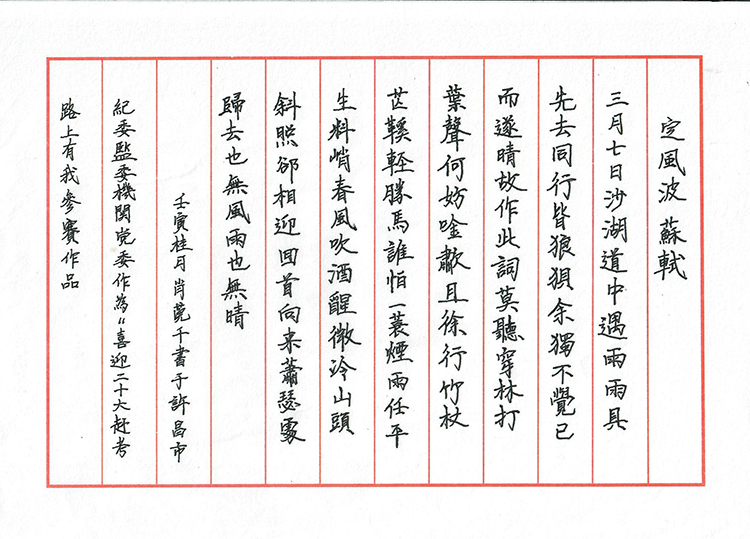 定風波 蘇軾
三月七日沙湖道中遇雨雨具
先去同行皆狼狽余獨不覺已
而遂晴故作此詞莫聽穿林打
葉聲何妨唫歗且徐行竹杖
芒鞵軽勝馬誰怕一蓑煙雨任平
生料峭春風吹酒醒微冷山頭
斜照卻相迎回首向来蕭瑟處
歸去也無風雨也無晴
壬寅桂月肖千書于許昌市
紀委監委機関党委作為"喜迎二十大赶考
路上有我参賽作品